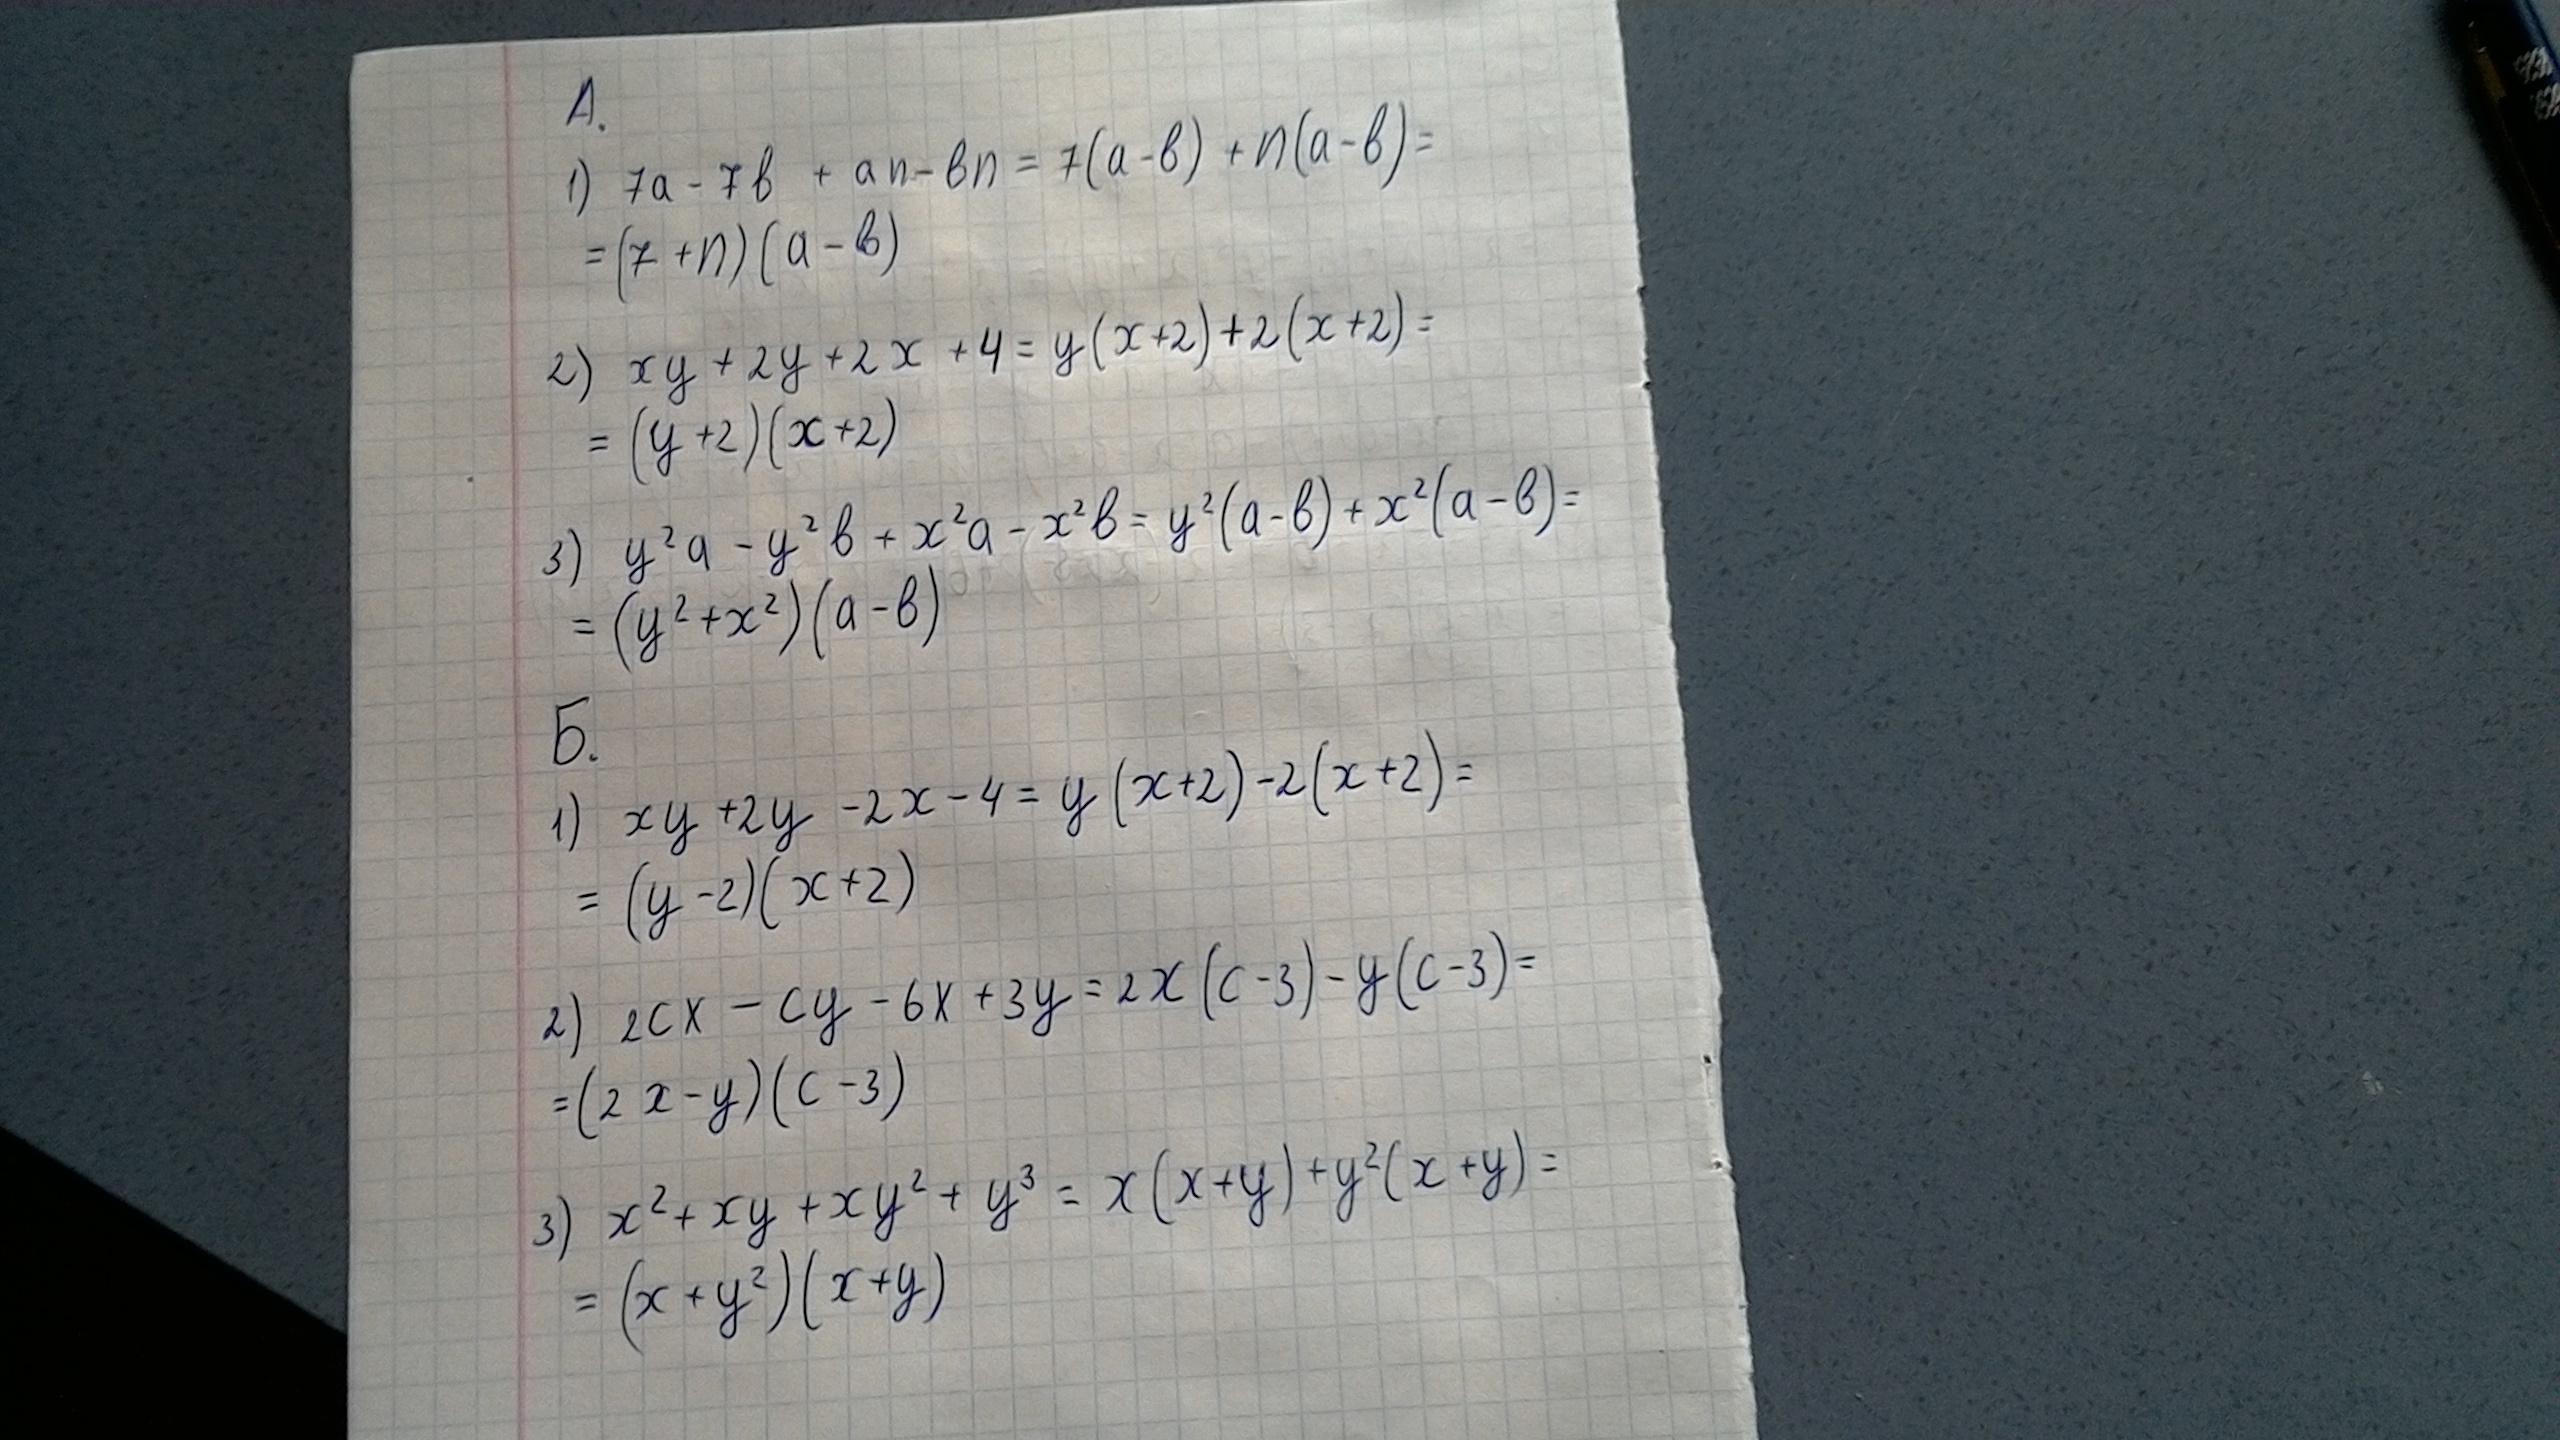 А.
1) 7a - 7b + an - bn = 7(a-b) + n(a-b) =
= (7+n)(a-b)
2) xy + 2y + 2x + 4 = y(x+2) + 2(x+2) =
= (y+2)(x+2)
3) y²a - y²b + x²a - x²b = y²(a-b) + x²(a-b) =
= (y²+x²)(a-b)
Б.
1) xy + 2y - 2x - 4 = y(x+2) - 2(x+2) =
= (y-2)(x+2)
2) 2cx - cy - 6x + 3y = 2x(c-3) - y(c-3) =
= (2x-y)(c-3)
3) x² + xy + xy² + y³ = x(x+y) + y²(x+y) =
= (x+y²)(x+y)